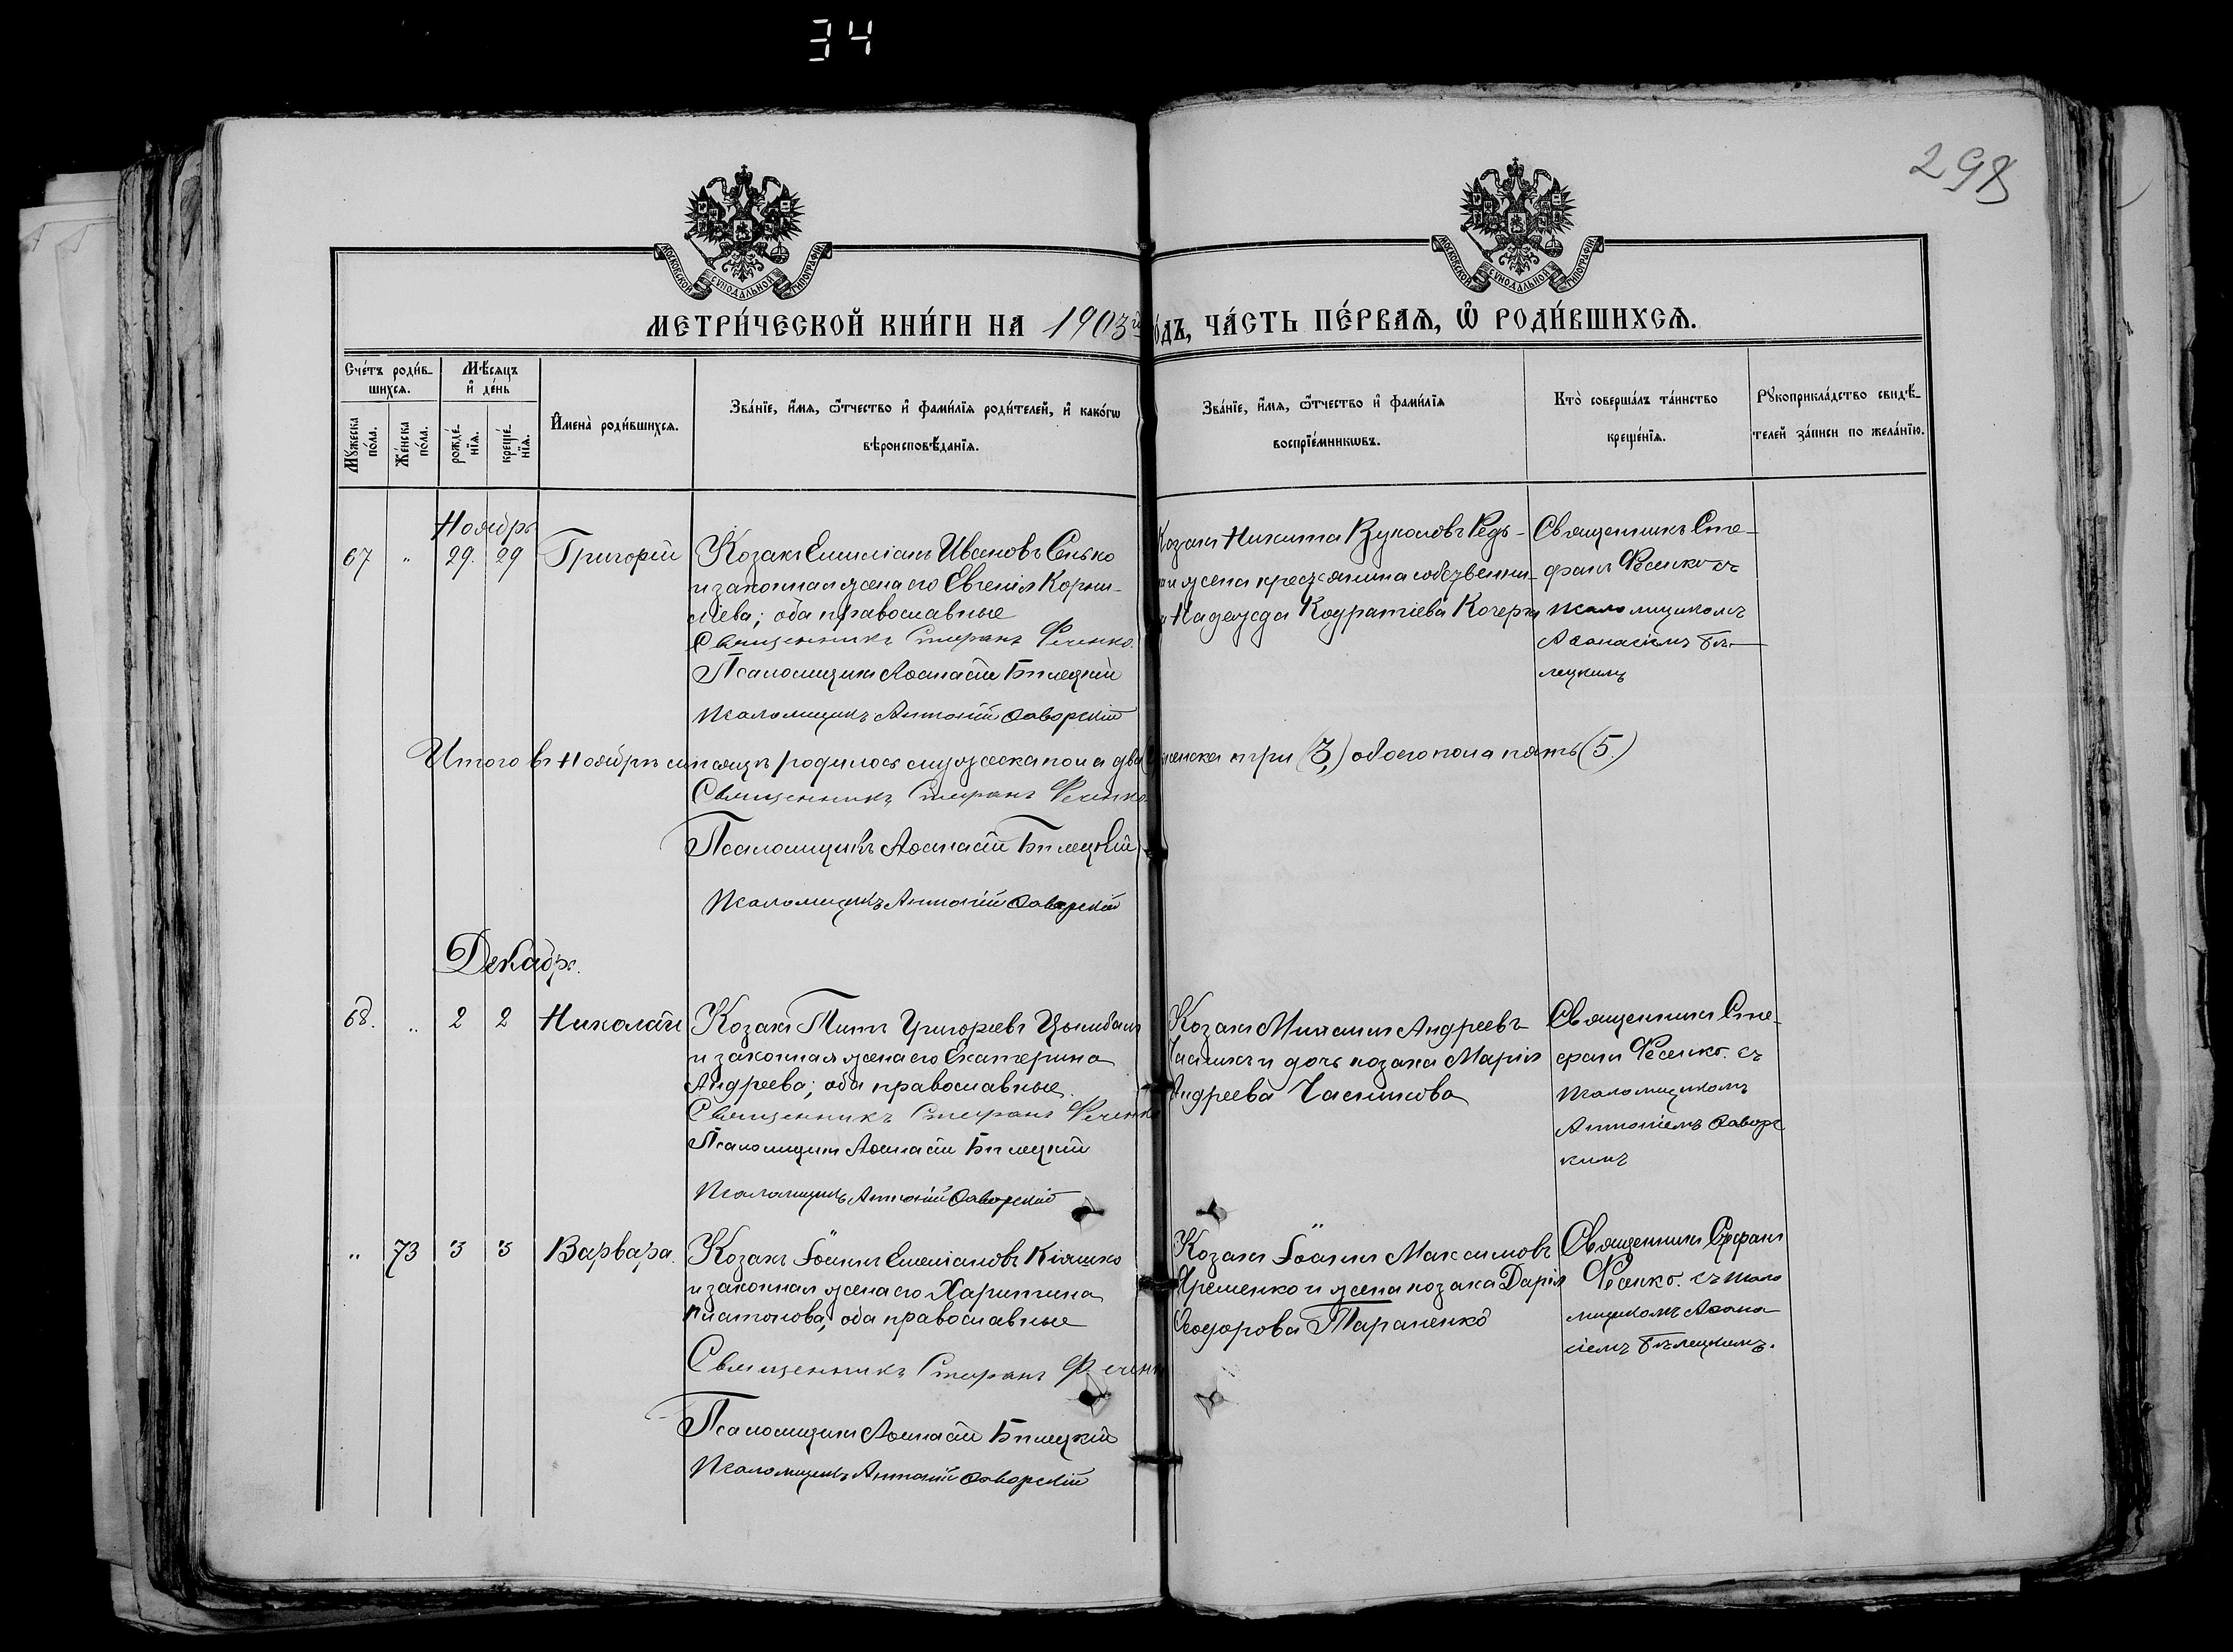 34
298
МОСКОВСКОЙ СѴНОДАЛЬНОЙ ТИПОГРАФІИ
МОСКОВСКОЙ СѴНОДАЛЬНОЙ ТИПОГРАФІИ
МЕТРИ́ЧЕСКОЙ КНИ́ГИ НА 1903й
о́дъ, ЧА́СТЬ ПЕ́РВАѦ, Ѡ҆ РОДИ́ВШИХСѦ.
Сче́тъ роди́в-
шихсѧ.
Мꙋ́жеска по́ла.
Же́нска по́ла.
Мѣ́сѧцъ
и҆ де́нь
рожде́-
нїѧ.
креще́-
нїѧ.
И҆мена̀ роди́вшихсѧ.
Зва́нїе, и҆́мѧ, ѻ҆́тчество и҆ фами́лїѧ роди́телей, и҆ како́гѡ
вѣроисповѣ́данїѧ.
Зва́нїе, и҆́мѧ, ѻ҆́тчество и҆ фами́лїѧ
воспрїе́мникѡвъ.
Кто̀ соверша́лъ та́инство
креще́нїѧ.
Рꙋкоприкла́дство свидѣ́-
телей за́писи по жела́нїю.
Ноябрь
67 " 29. 29 Григорій
Козакъ Емиліанъ Ивановъ Сенько
и законная жена его Евгенія Корни-
ліева; оба православные
Священникъ Стефанъ Фесенко.
Псаломщикъ Аѳанасій Бѣлецкій
Псаломщикъ Антоній Яворскій
Козакъ Никита Вуколовъ Редь-
жена крестьянина собственни-
Надежда Кодратіева Кочерга
Священникъ Сте-
фанъ Фесенко съ
псаломщикомъ
Аѳанасіемъ Бѣ-
лецкимъ
Итого въ Ноябрѣ мѣсяцѣ родилось мужеска пола два женска три (3,) обоего пола пять (5.)
Священникъ Стефанъ Фесенко
Псаломщикъ Аѳанасій Бѣлецкій
Псаломщикъ Антоній Яворскій
Декабрь.
68. " 2 2 Николай
Козакъ Титъ Григоріевъ Цымбалъ
и законная жена его Екатерина
Андреева; оба православные.
Священникъ Стефанъ Фесенко
Псаломщикъ Аѳанасій Бѣлецкій
Псаломщикъ Антоній Яворскій
Козакъ Михаилъ Андреевъ
и дочь козака Марія
Андреева
Священникъ Сте-
фанъ Фесенко. съ
псаломщикомъ
Антоніемъ Яворс
кимъ
" 73 3 3 Варвара.
Козакъ Іоаннъ Емеліановъ Кіяшко
и законная жена его Харитина
Платонова, оба православные
Священникъ Стефанъ Фесенко
Псаломщикъ Аѳанасій Бѣлецкій
Псаломщикъ Антоній Яворскій
Козакъ Іоаннъ Максимовъ
Яременко и жена козака Дарія
Ѳеодорова Тараненко
Священникъ Стефанъ
Фесенко. съ псало
мщикомъ Аѳана
сіемъ Бѣлецкимъ.